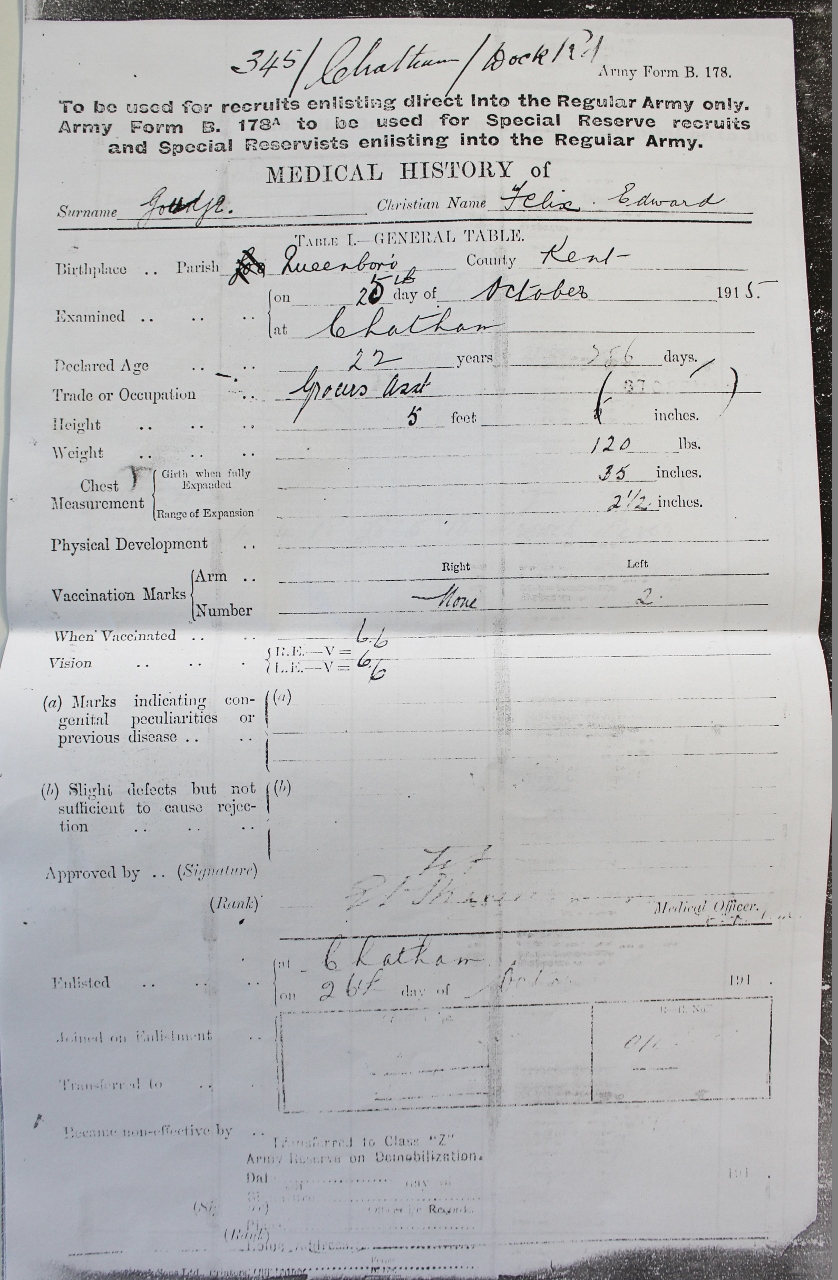 345/ Chatham / Dock Rd
Army Form B. 178.
To be used for recruits enlisting direct into the Regular Army only.
Army Form B. 178A to be used for Special Reserve recruits
and Special Reservists enlisting into the Regular Army.
MEDICAL HISTORY of
Surname Goudge. Christian Name Felix Edward
TABLE I.—GENERAL TABLE.
Birthplace .. Parish Queenboro County Kent
on 25th day of October 1915.
Examined .. .. ..
at Chatham
Declared Age .. .. 22 years days.
Trade or Occupation .. Grocers Asst
Height .. .. .. 5 feet inches.
Weight .. .. .. 120 lbs.
Chest Measurement
Girth when fully Expanded 35 inches.
Range of Expansion 2 1/2 inches.
Physical Development ..
Right Left
Vaccination Marks
Arm ..
Number None 2.
When Vaccinated .. ..
Vision .. .. ..
R.E.—V = 6/6
L.E.—V = 6/6
(a) Marks indicating con-
genital peculiarities or
previous disease .. ..
(a)
(b) Slight defects but not
sufficient to cause rejec-
tion .. .. ..
(b)
Approved by .. (Signature)
(Rank)
Medical Officer.
at Chatham
Enlisted .. .. ..
on 26th day of 191 .
Joined on Enlistment ..
Transferred to .. ..
Became non-effective by ..
Transferred to Class "Z"
Army Reserve on Demobilization.
191 .
Records
(Rank)